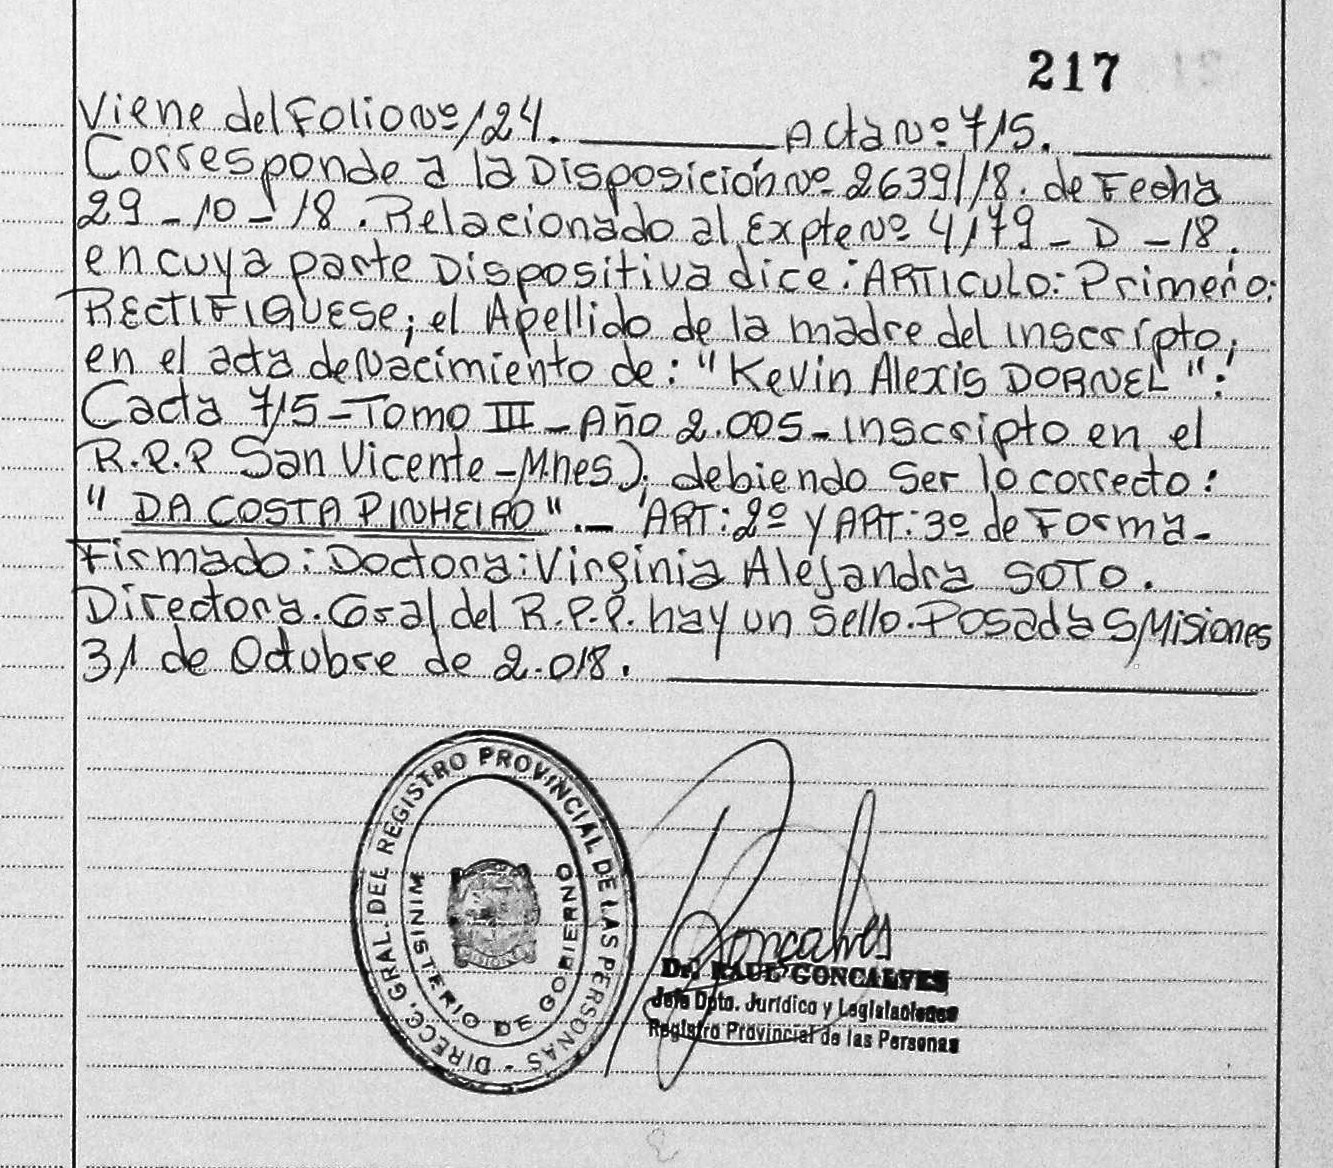 217
Viene del Folio Nº 124. Acta Nº 715.
Corresponde a la Disposición Nº 2639/18. de Fecha
29-10-18. Relacionado al Expte Nº 4179-D-18.
en cuya parte Dispositiva dice: ARTICULO: Primero:
RECTIFIQUESE; el Apellido de la madre del inscripto,
en el acta de Nacimiento de: "Kevin Alexis DORNEL":
(acta 715-Tomo III-Año 2.005-inscripto en el
R.P.P San Vicente-Mnes); debiendo ser lo correcto:
"DA COSTA PINHEIRO".- ART: 2º Y ART: 3º de Forma-
Firmado: Doctora: Virginia Alejandra SOTO.
Directora. Gral del R.P.P. hay un sello. Posadas Misiones
31 de Octubre de 2.018.
DIRECC. GRAL. DEL REGISTRO PROVINCIAL DE LAS PERSONAS -
MINISTERIO DE GOBIERNO
Goncalves
Dr. RAUL GONCALVES
Jefe Dpto. Jurídico y Legislaciones
Registro Provincial de las Personas